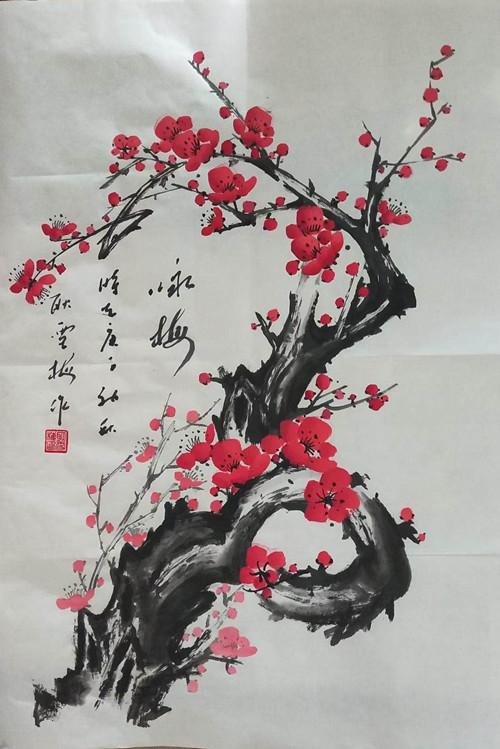 咏梅
时在庚子初秋
耿雪梅作